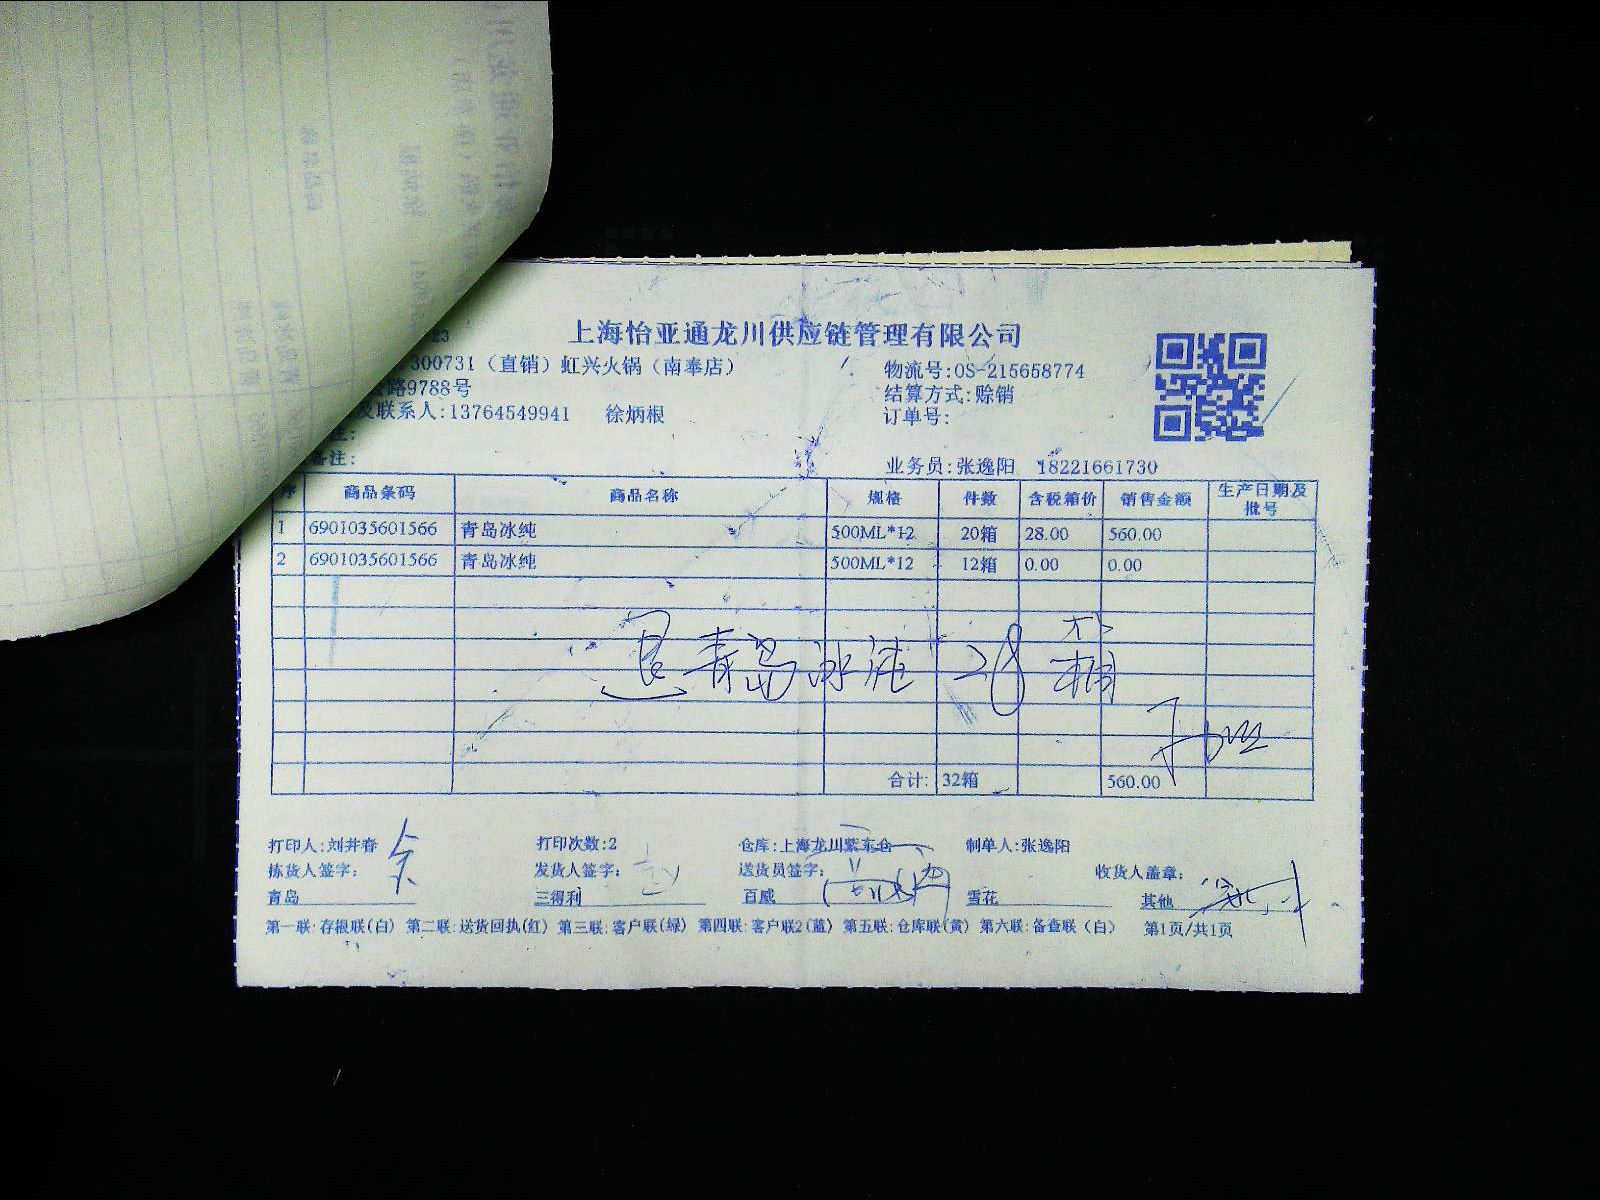 上海怡亚通龙川供应链管理有限公司
300731（直销）虹兴火锅（南奉店）
物流号:OS-215658774
路9788号
结算方式:赊销
联系人:13764549941 徐炳根
订单号:
备注:
业务员:张逸阳 18221661730
序 商品条码 商品名称 规格 件数 含税箱价 销售金额 生产日期及批号
1 6901035601566 青岛冰纯 500ML*12 20箱 28.00 560.00
2 6901035601566 青岛冰纯 500ML*12 12箱 0.00 0.00
退青岛冰纯 28箱
合计: 32箱 560.00
打印人:刘井春 打印次数:2 仓库:上海龙川紫东仓 制单人:张逸阳
拣货人签字: 发货人签字: 送货员签字: 收货人盖章:
青岛 三得利 百威 雪花 其他
第一联:存根联(白) 第二联:送货回执(红) 第三联:客户联(绿) 第四联:客户联2(蓝) 第五联:仓库联(黄) 第六联:备查联（白） 第1页/共1页